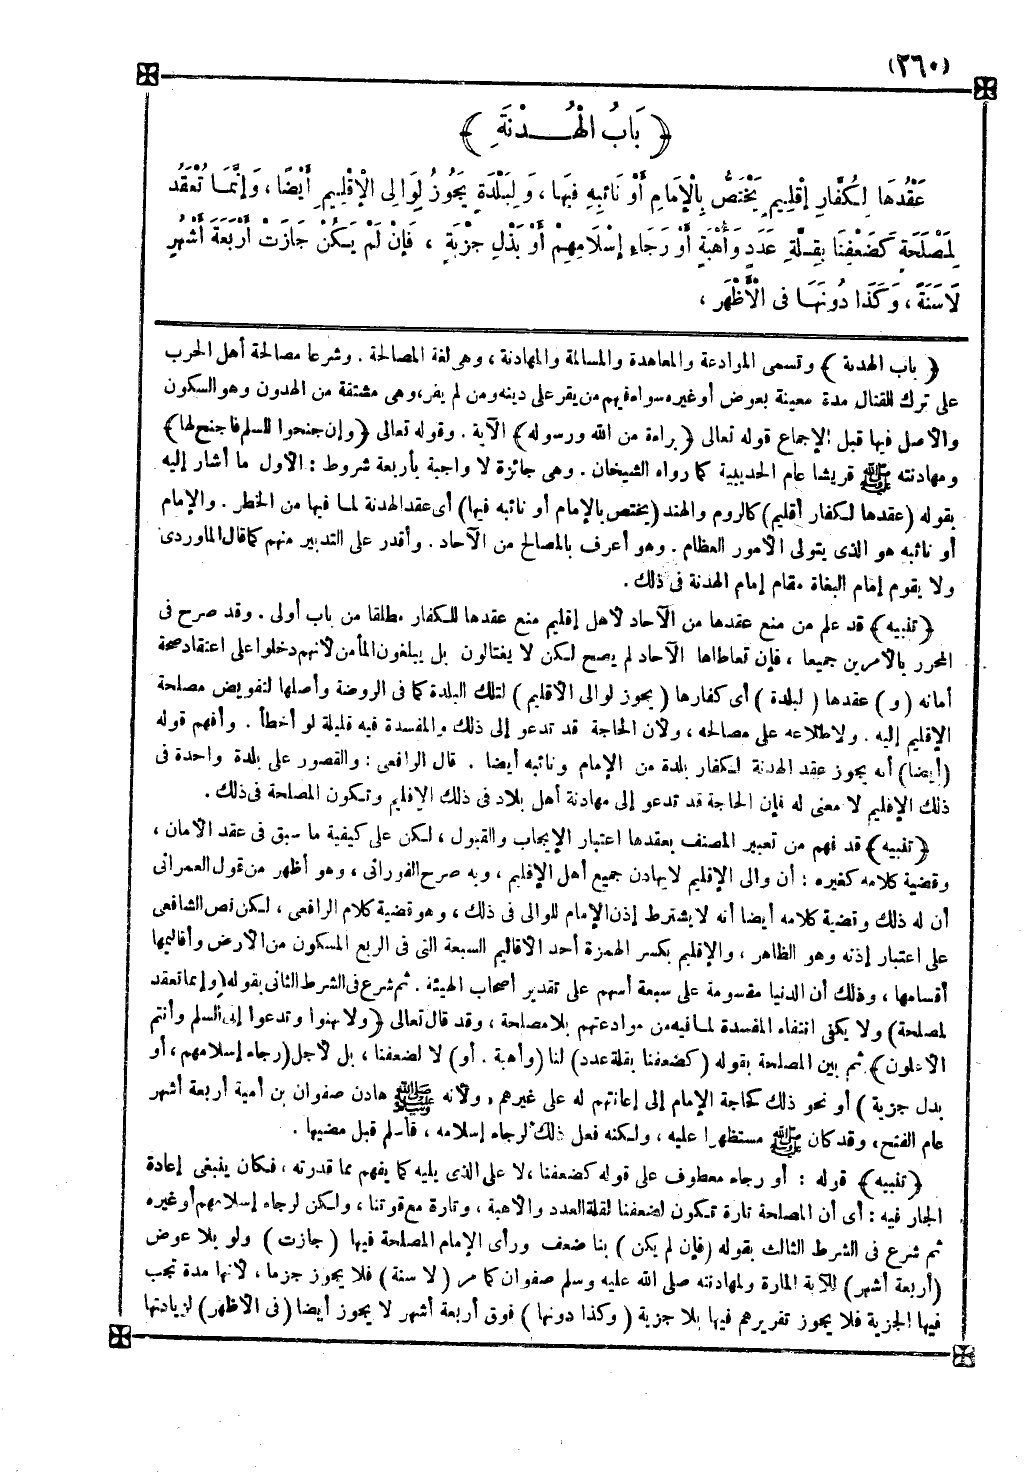 (٢٦٠)
﴿ بَابُ الْهُدْنَةِ ﴾
عَقْدُهَا لِكُفَّارِ إِقْلِيمٍ يَخْتَصُّ بِالْإِمَامِ أَوْ نَائِبِهِ فِيهَا ، وَلِبَلْدَةٍ يَجُوزُ لِوَالِى الْإِقْلِيمِ أَيْضًا ، وَإِنَّمَا تُعْقَدُ
لِمَصْلَحَةٍ كَضَعْفِنَا بِقِلَّةِ عَدَدٍ وَأُهْبَةٍ أَوْ رَجَاءِ إِسْلَامِهِمْ أَوْ بَذْلِ جِزْيَةٍ ، فَإِنْ لَمْ يَكُنْ جَازَتْ أَرْبَعَةَ أَشْهُرٍ
لَا سَنَةً ، وَكَذَا دُونَهَا فى الْأَظْهَرِ ،
﴿ باب الهدنة ﴾ وتسمى الموادعة والمعاهدة والمسالمة والمهادنة ، وهى لغة المصالحة . وشرعا مصالحة أهل الحرب
على ترك القتال مدة معينة بعوض أو غيره سواء فيهم من يقر على دينه ومن لم يقر ، وهى مشتقة من الهدون وهو السكون
والأصل فيها قبل الإجماع قوله تعالى ﴿ براءة من الله ورسوله ﴾ الآية . وقوله تعالى ﴿ وإن جنحوا للسلم فاجنح لها ﴾
ومهادنته ﷺ قريشا عام الحديبية كما رواه الشيخان . وهى جائزة لا واجبة بأربعة شروط : الأول ما أشار إليه
بقوله (عقدها لكفار أقليم) كالروم والهند (يختص بالإمام أو نائبه فيها) أى عقد الهدنة لما فيها من الخطر . والإمام
أو نائبه هو الذى يتولى الأمور العظام . وهو أعرف بالمصالح من الآحاد . وأقدر على التدبير منهم كما قال الماوردى
ولا يقوم إمام البغاة مقام إمام الهدنة فى ذلك .
﴿ تنبيه ﴾ قد علم من منع عقدها من الآحاد لأهل إقليم منع عقدها للكفار مطلقا من باب أولى . وقد صرح فى
المحرر بالأمرين جميعا ، فإن تعاطاها الآحاد لم يصح لكن لا يغتالون بل يبلغون المأمن لأنهم دخلوا على اعتقاد صحة
أمانه (و) عقدها (لبلدة) أى كفارها (يجوز لوالى الاقليم) لتلك البلدة كما فى الروضة وأصلها لتفويض مصلحة
الإقليم إليه . ولاطلاعه على مصالحه ، ولأن الحاجة قد تدعو إلى ذلك والمفسدة فيه قليلة لو أخطأ . وأفهم قوله
(أيضا) أنه يجوز عقد الهدنة لكفار بلدة من الإمام ونائبه أيضا . قال الرافعى : والقصور على بلدة واحدة فى
ذلك الإقليم لا معنى له فإن الحاجة قد تدعو إلى مهادنة أهل بلاد فى ذلك الإقليم وتكون المصلحة فى ذلك .
﴿ تنبيه ﴾ قد فهم من تعبير المصنف بعقدها اعتبار الإيجاب والقبول ، لكن على كيفية ما سبق فى عقد الأمان ،
وقضية كلامه كغيره : أن والى الإقليم لا يهادن جميع أهل الإقليم ، وبه صرح الفورانى ، وهو أظهر من قول العمرانى
أن له ذلك وقضية كلامه أيضا أنه لا يشترط إذن الإمام للوالى فى ذلك ، وهو قضية كلام الرافعى ، لكن نص الشافعى
على اعتبار إذنه وهو الظاهر ، والإقليم بكسر الهمزة أحد الأقاليم السبعة التى فى الربع المسكون من الأرض وأقاليمها
أقسامها ، وذلك أن الدنيا مقسومة على سبعة أسهم على تقدير أصحاب الهيئة . ثم شرع فى الشرط الثانى بقوله (وإنما تعقد
لمصلحة) ولا يكفى انتفاء المفسدة لما فيه من موادعتهم بلا مصلحة ، وقد قال تعالى ﴿ ولا تهنوا وتدعوا إلى السلم وأنتم
الأعلون ﴾ ثم بين المصلحة بقوله (كضعفنا بقلة عدد) لنا (وأهبة . أو) لا لضعفنا ، بل لأجل (رجاء إسلامهم ، أو
بدل جزية ) أو نحو ذلك كحاجة الإمام إلى إعانتهم له على غيرهم ، ولأنه ﷺ هادن صفوان بن أمية أربعة أشهر
عام الفتح ، وقد كان ﷺ مستظهرا عليه ، ولكنه فعل ذلك لرجاء إسلامه ، فأسلم قبل مضيها .
﴿ تنبيه ﴾ قوله : أو رجاء معطوف على قوله كضعفنا ، لا على الذى يليه كما يفهم مما قدرته ، فكان ينبغى إعادة
الجار فيه : أى أن المصلحة تارة تكون لضعفنا لقلة العدد والأهبة ، وتارة مع قوتنا ، ولكن لرجاء إسلامهم أو غيره
ثم شرع فى الشرط الثالث بقوله (فإن لم يكن ) بنا ضعف ورأى الإمام المصلحة فيها (جازت) ولو بلا عوض
(أربعة أشهر) للآية المارة ولمهادنته صلى الله عليه وسلم صفوان كما مر (لا سنة) فلا يجوز جزما ، لأنها مدة تجب
فيها الجزية فلا يجوز تقريرهم فيها بلا جزية ( وكذا دونها ) فوق أربعة أشهر لا يجوز أيضا (فى الأظهر) لزيادتها